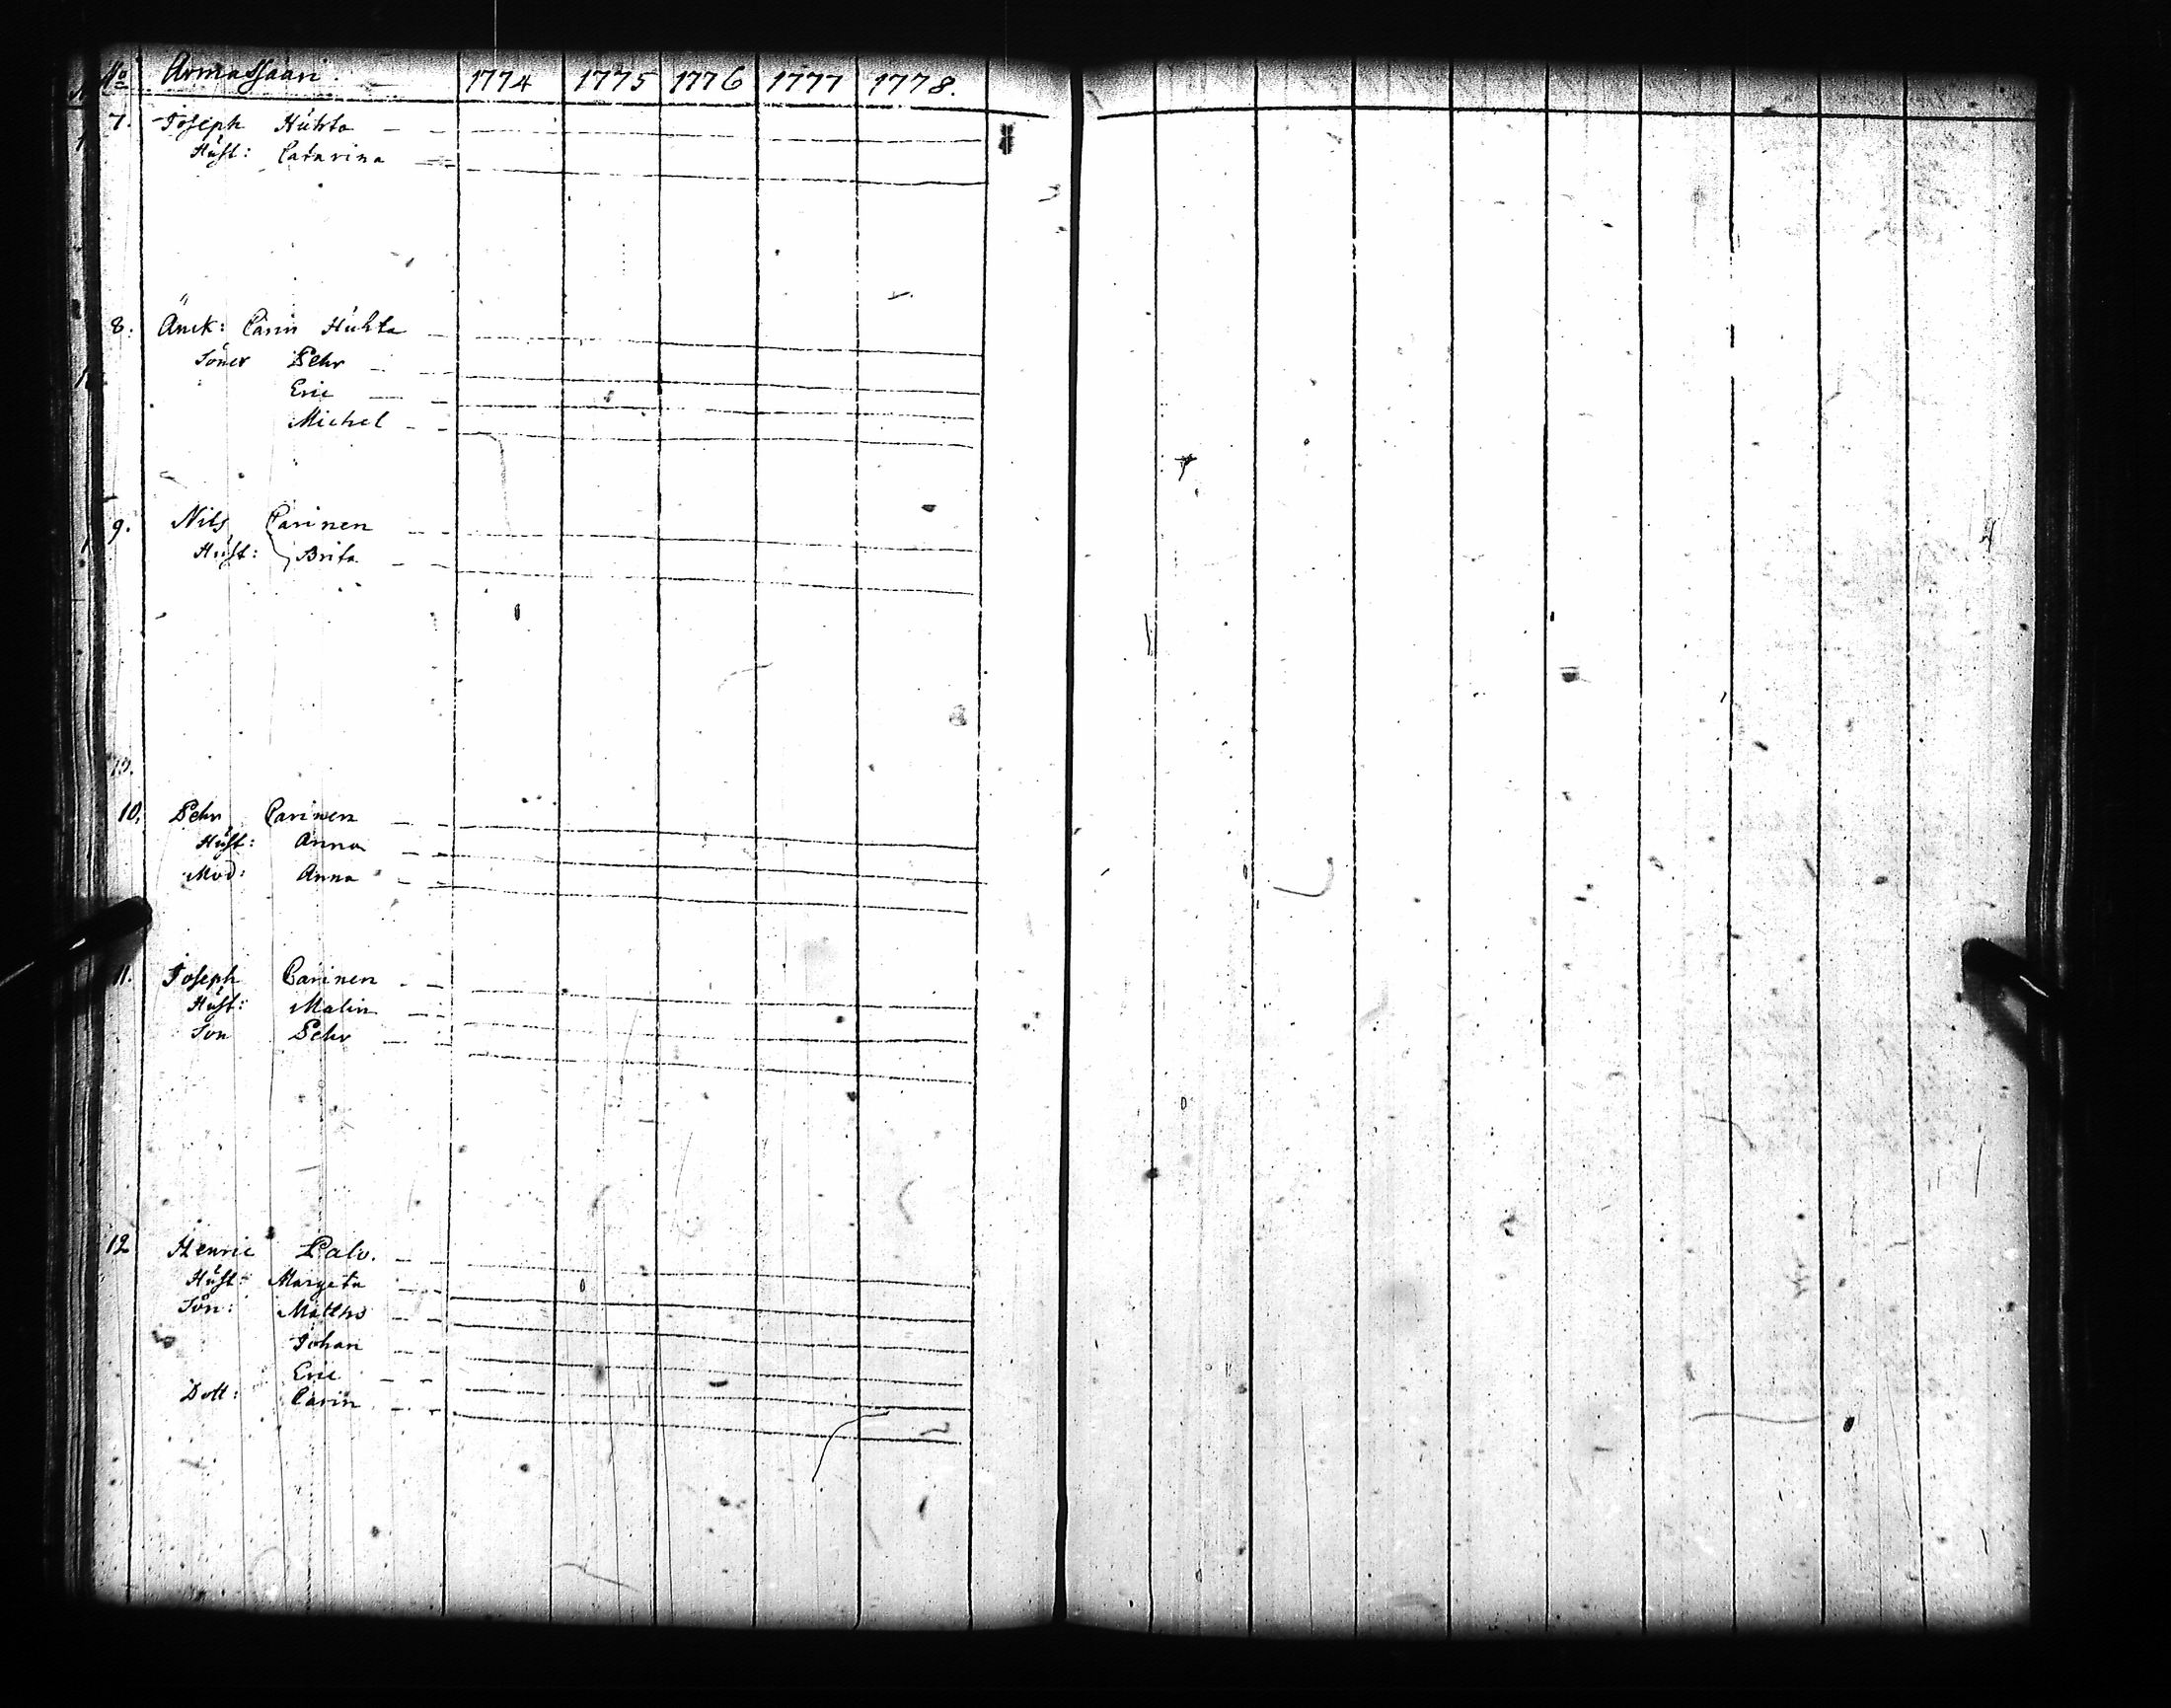 No Armassaari. 1774 1775 1776 1777 1778.
7. Joseph Huhta
Hust: Catarina
8. Änck: Carin Huhta
Söner Pehr
Eric
Michel
9. Nils Carinen
Hust: Brita
10.
10. Pehr Carinen
Hust: Anna
Mod: Anna
11. Joseph Carinen
Hust: Malin
Son Pehr
12 Henric Palo.
Hust: Margeta
Son: Matths
Johan
Eric
Dott: Carin